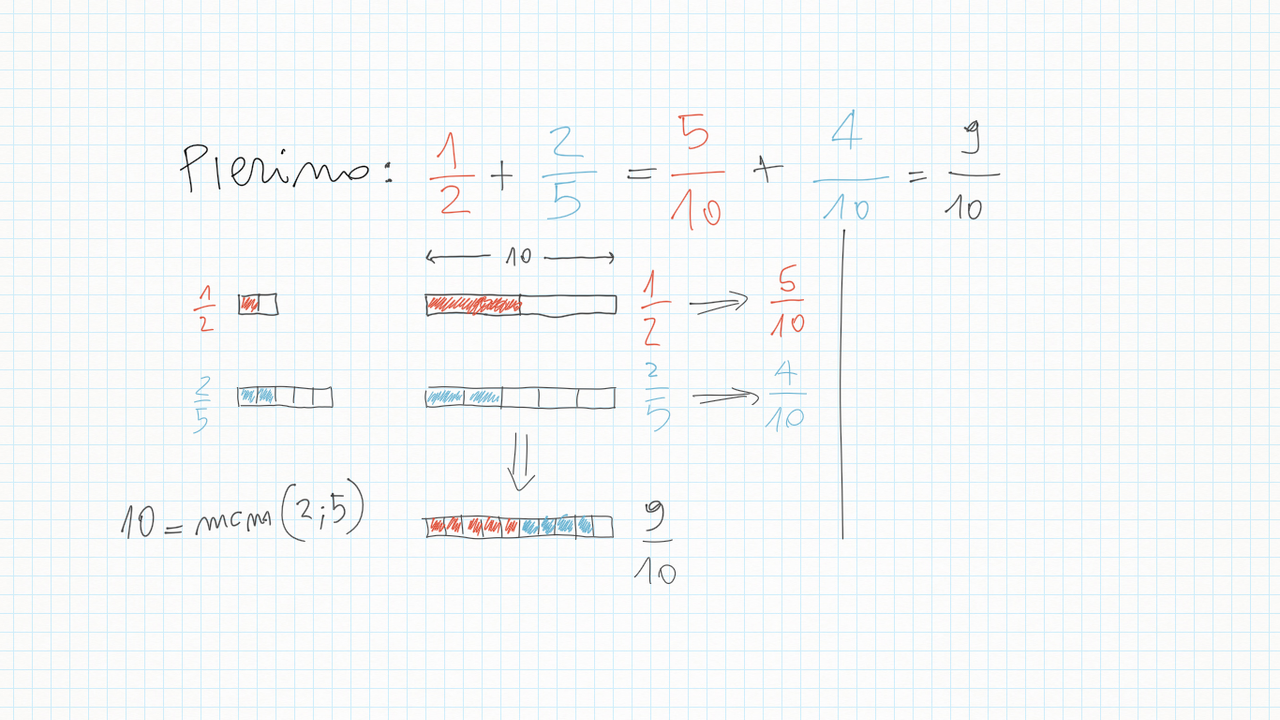 Pierino: 1/2 + 2/5 = 5/10 + 4/10 = 9/10
10
1/2 1/2 ⟹ 5/10
2/5 2/5 ⟹ 4/10
10 = mcm (2;5) 9/10